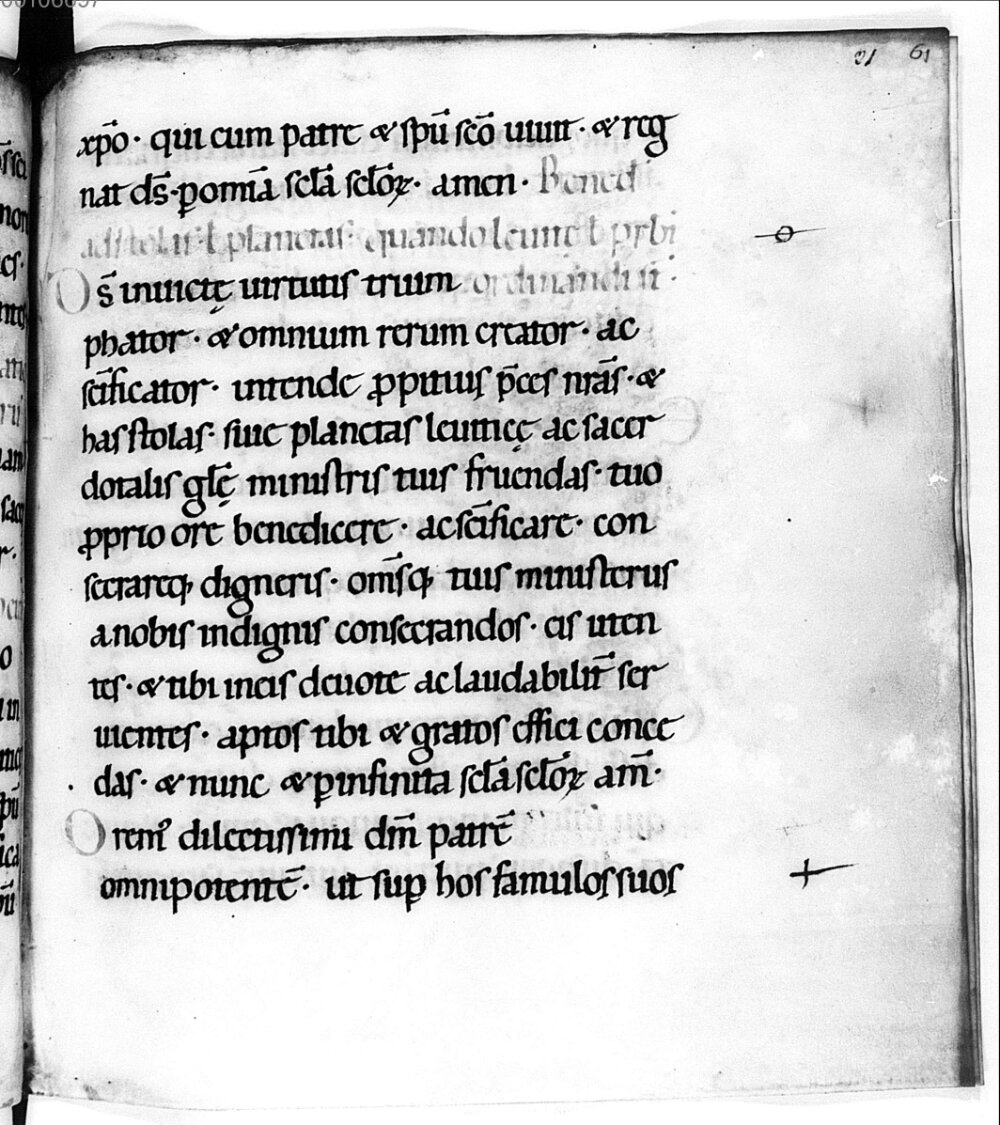 31 61
xp̄o · qui cum patre & sp̄u sc̄o uiuit · & reg
nat ds̄ · ꝑ om̄ia scl̄a scl̄oꝝ · amen · Bened
ad stolas ł planetas quando leuitę ł prb̄i
Ds̄ inuictę uirtutis trium ordinandi st̄ ·
phator · & omnium rerum creator · ac
sc̄ificator · intende ꝓpitius p̄ces nr̄as · &
has stolas · siue planetas leuiticę ac sacer
dotalis gl̄ę ministris tuis fruendas · tuo
ꝓprio ore benedicere · ac sc̄ificare · con
secrareq; digneris · om̄sq; tuis ministeriis
a nobis indignis consecrandos · eis uten
tes · & tibi in eis deuote ac laudabilit̄ ser
uientes · aptos tibi & gratos effici conce
das · & nunc & ꝑ infinita scl̄a scl̄oꝝ am̄ ·
Orem᷒ dilectissimi dm̄ patrē
omnipotentē · ut suꝑ hos famulos suos